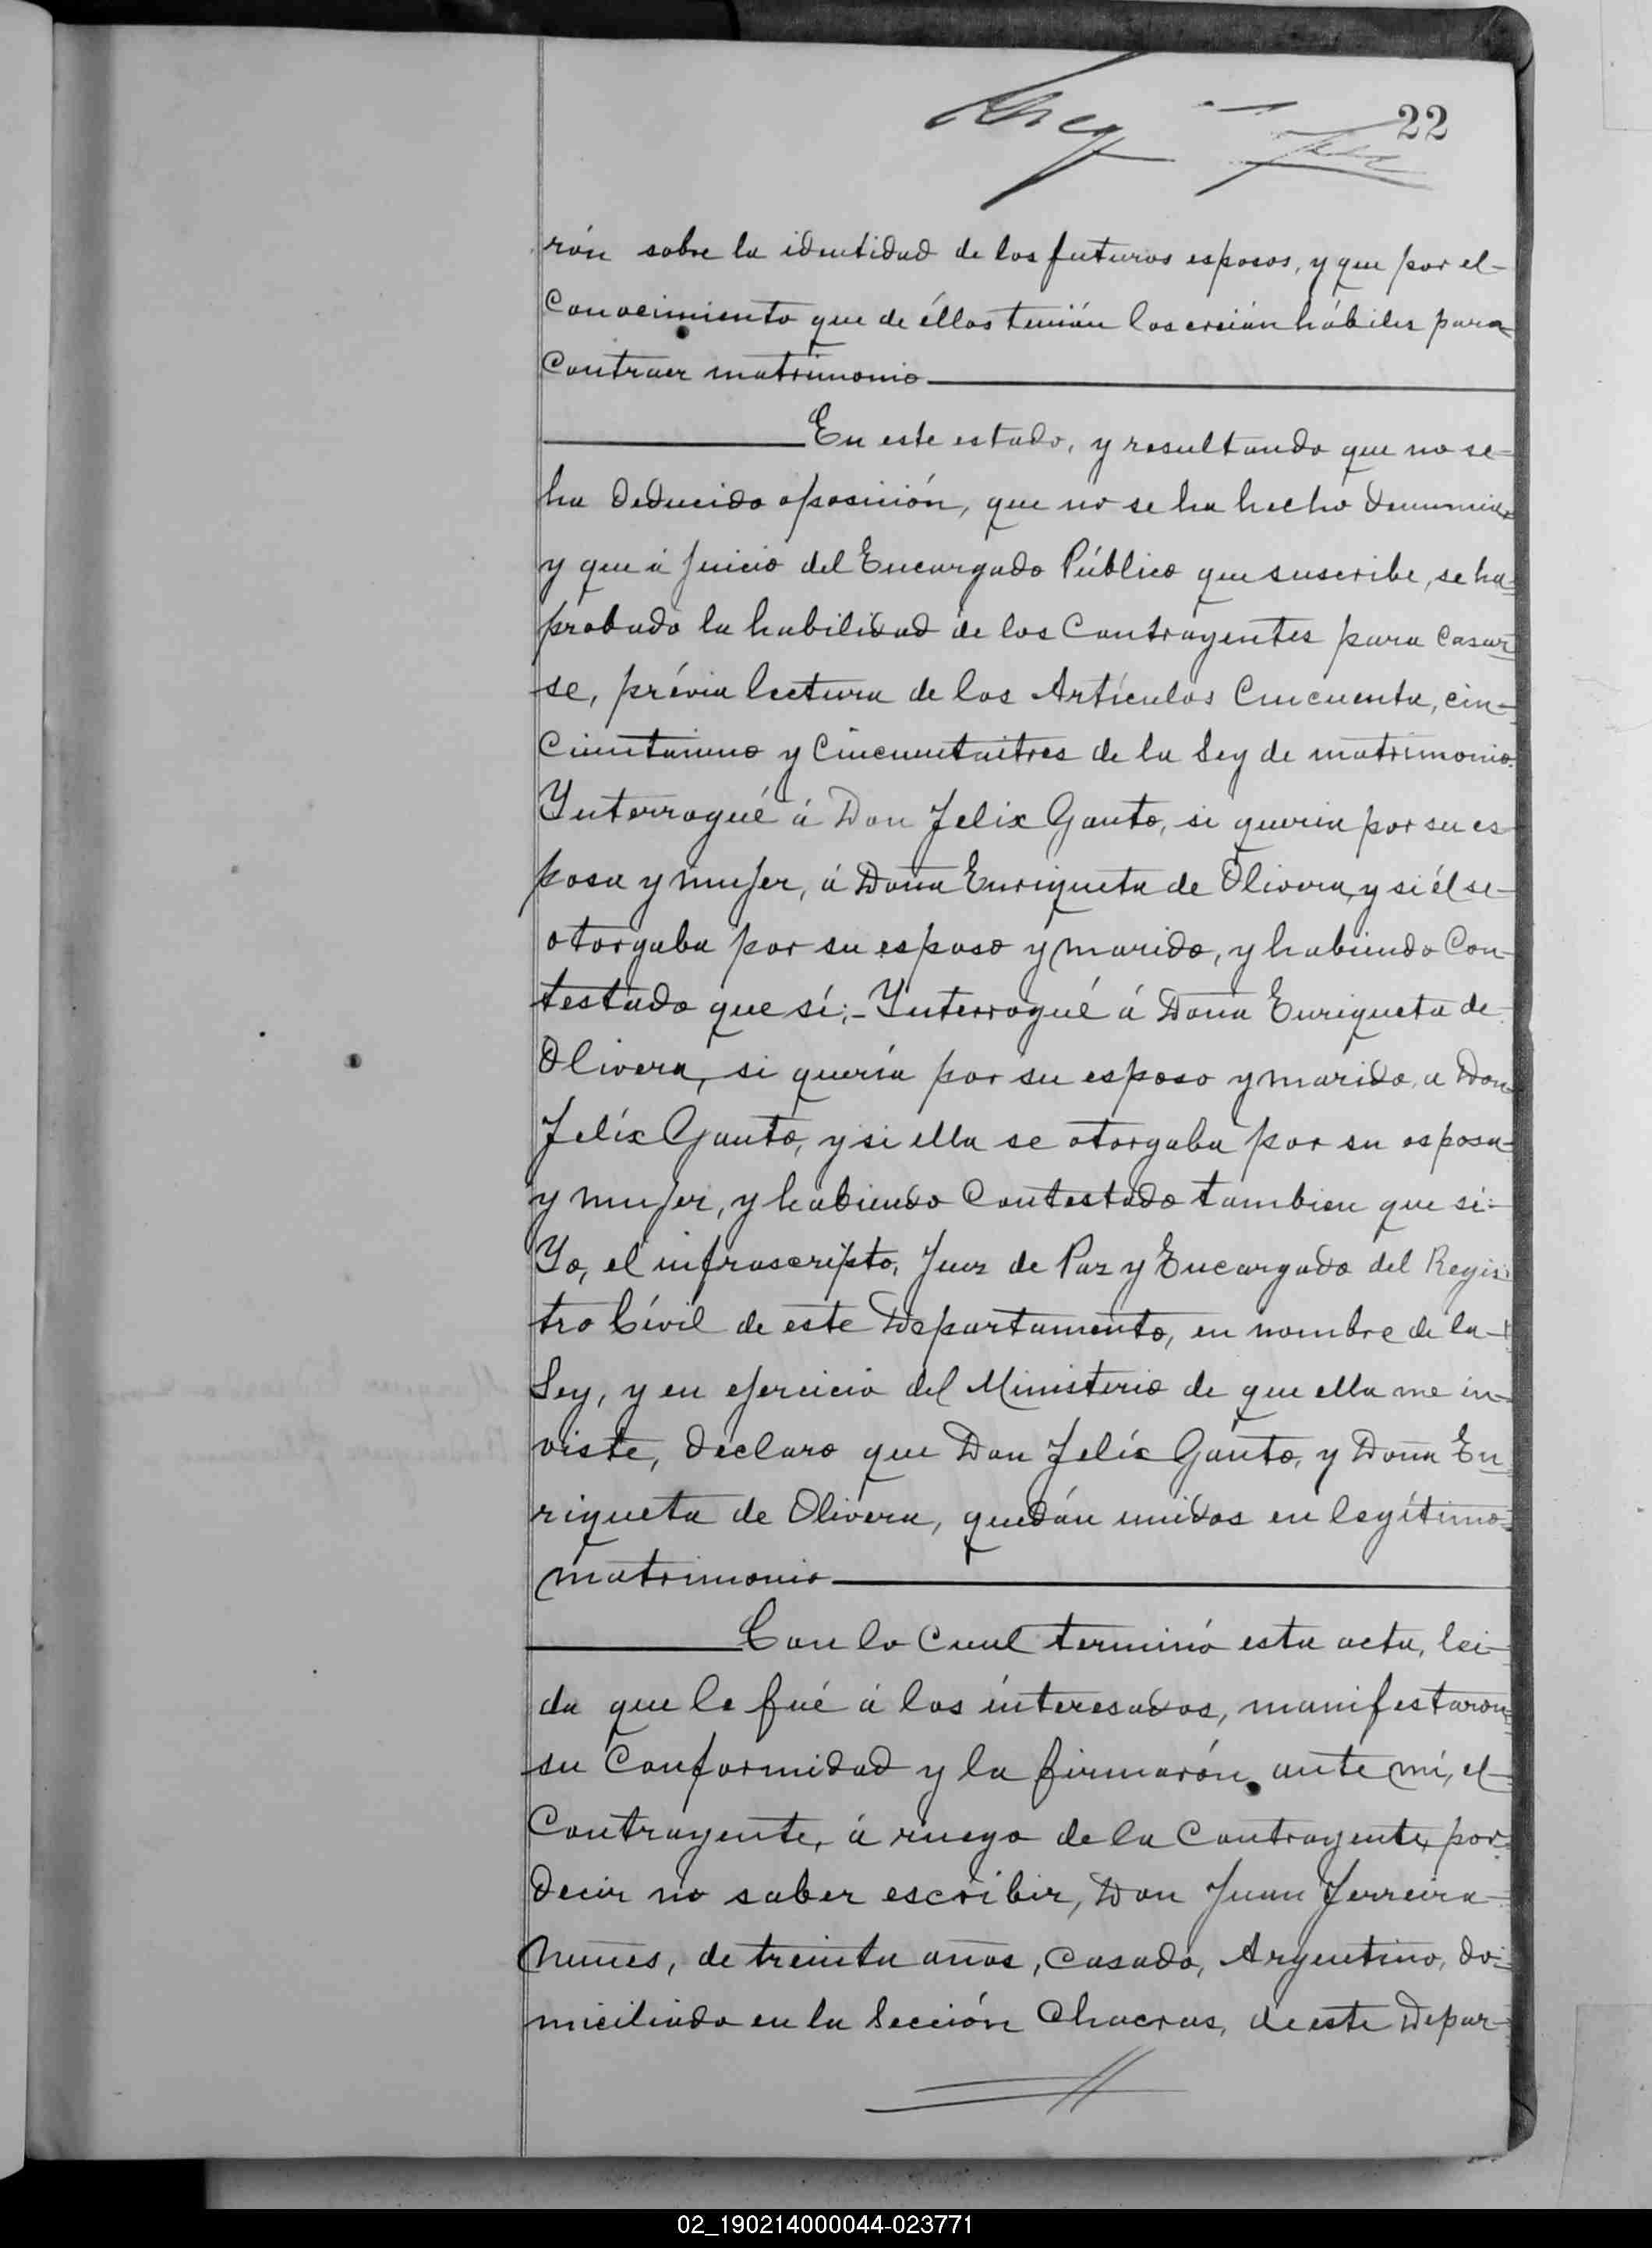 22
rón sobre la identidad de los futuros esposos, y que por el-
Conocimiento que de éllos tenián los creián hábiles para
Contraer matrimonio
En este estado, y resultando que no se-
ha deducido oposición, que no se ha hecho denuncia
y que á juicio del Encargado Público que suscribe, se ha
probado la habilidad de los Contrayentes para Casar
se, prévia lectura de los Artículos Cincuenta, cin-
Cuentaiuno y Cincuentaitres de la Ley de matrimonio.
Ynterrogué á Don Felix Gauto, si queria por su es
posa y mujer, á Doña Enriqueta de Olivera, y si él se-
otorgaba por su esposo y marido, y habiendo Con-
testado que sí;- Ynterrogué á Doña Enriqueta de
Olivera, si quería por su esposo y marido, a Don
Felíx Gauto, y si ella se otorgaba por su esposa
y mujer, y habiendo Contestado tambien que sí-
Yo, el infrascripto, Juez de Paz y Encargado del Regis
tro Cívil de este Departamento, en nombre de la-
Ley, y en ejercicio del Ministerio de que ella me in-
viste, declaro que Don Felíx Gauto, y Doña En
riqueta de Olivera, quedán unidos en legítimo
matrimonio
Con lo Cual terminó esta acta, lei-
da que le fué á los interesados, manifestaron
su Conformidad y la firmarón, ante mí, el
Contrayente, á ruego de la Contrayente, por
decir no saber escribir, Don Juan Ferreira
Nunes, de treinta años, Casado, Argentino, do-
miciliado en la Sección Chacras, de este Depar-
02_190214000044-023771